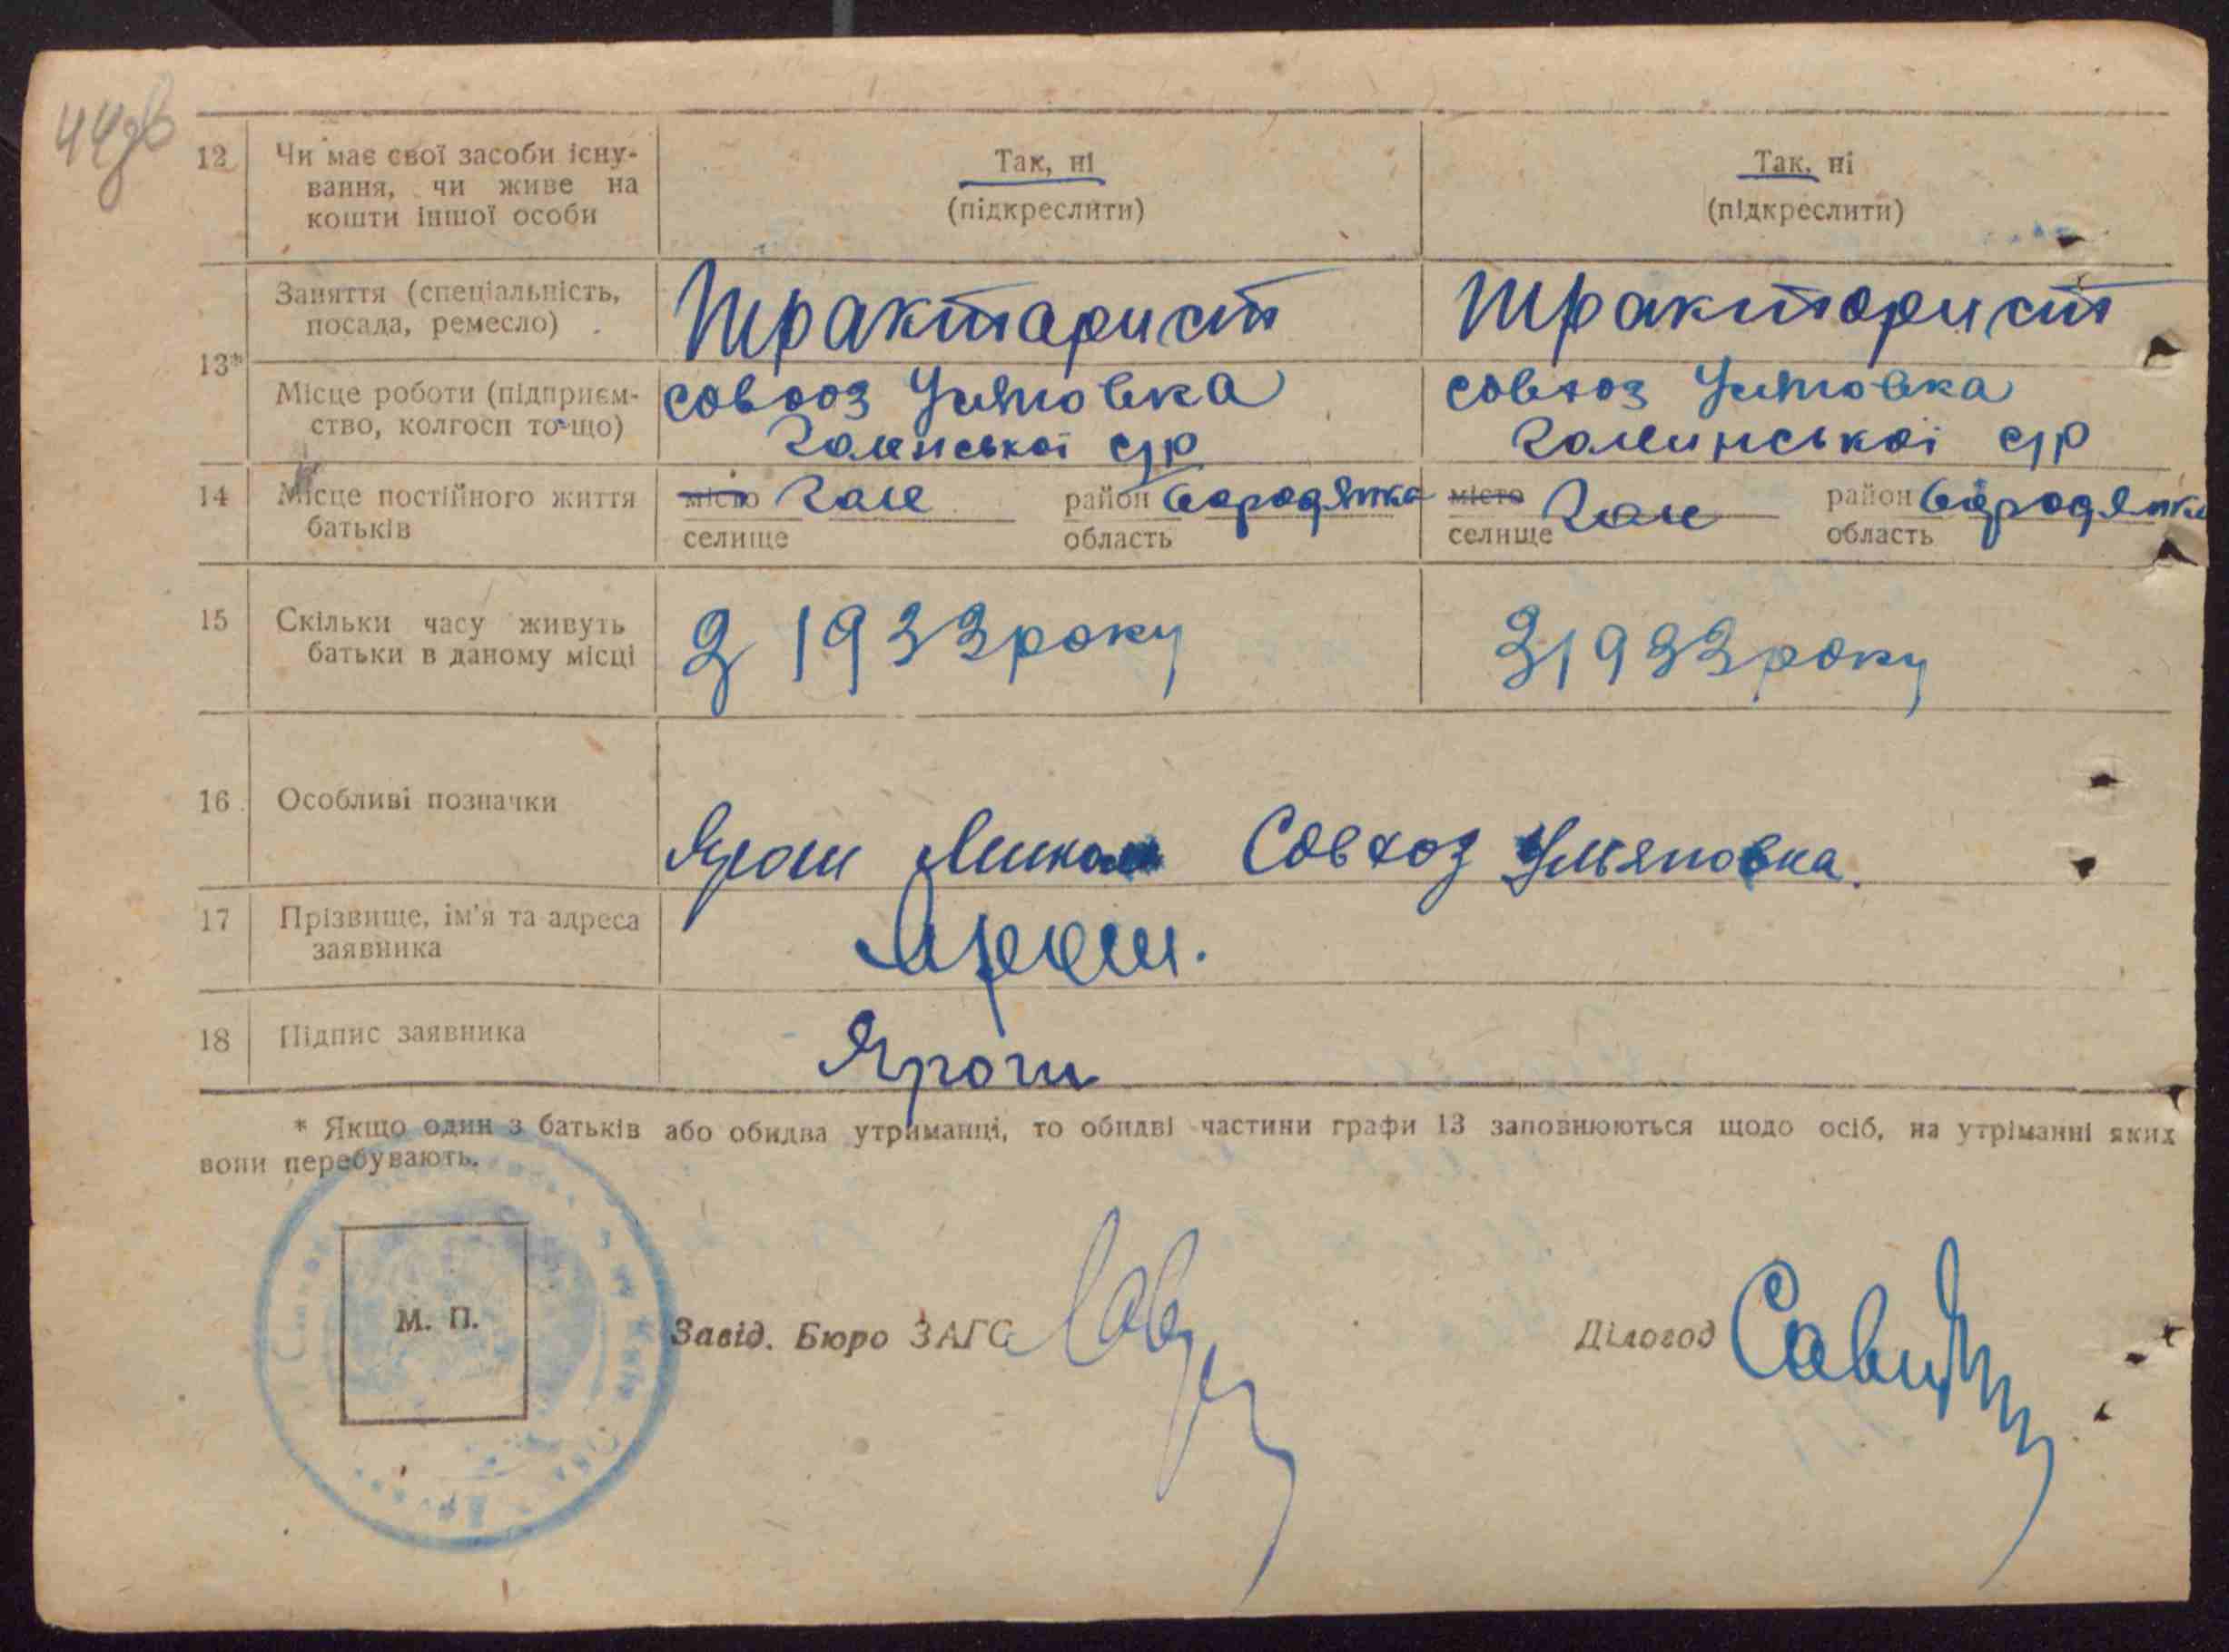 44зв
12 Чи має свої засоби існу-
вання, чи живе на
кошти іншої особи
Так, ні
(підкреслити)
Так, ні
(підкреслити)
13*
Заняття (спеціальність,
посада, ремесло)
трактарист
тракторист
Місце роботи (підприєм-
ство, колгосп то-що)
совхоз
совхоз
14 Місце постійного життя
батьків
місто район Бородянка
селище область
місто район Бородянка
селище область
15 Скільки часу живуть
батьки в даному місці
З 1933 року
З 1933 року
16 Особливі позначки
Ярош Микола Совхоз Ульяновка.
17 Прізвище, ім'я та адреса
заявника
Ярош.
18 Підпис заявника
Ярош
* Якщо один з батьків або обидва утриманці, то обидві частини графи 13 заповнюються щодо осіб, на утріманні яких
вони перебувають.
М. П.
Завід. Бюро ЗАГС
Діловод